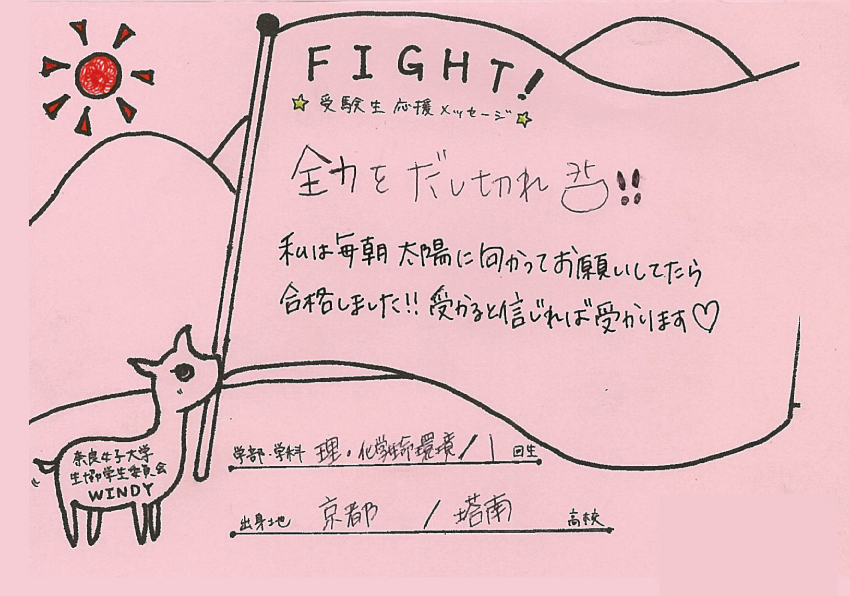 FIGHT!
☆受験生応援メッセージ☆
全力をだし切れ!!
私は毎朝太陽に向かってお願いしてたら
合格しました!! 受かると信じれば受かります♡
学部・学科 理・化学生命環境/1 回生
出身地 京都 / 塔南 高校
奈良女子大学
生協学生委員会
WINDY